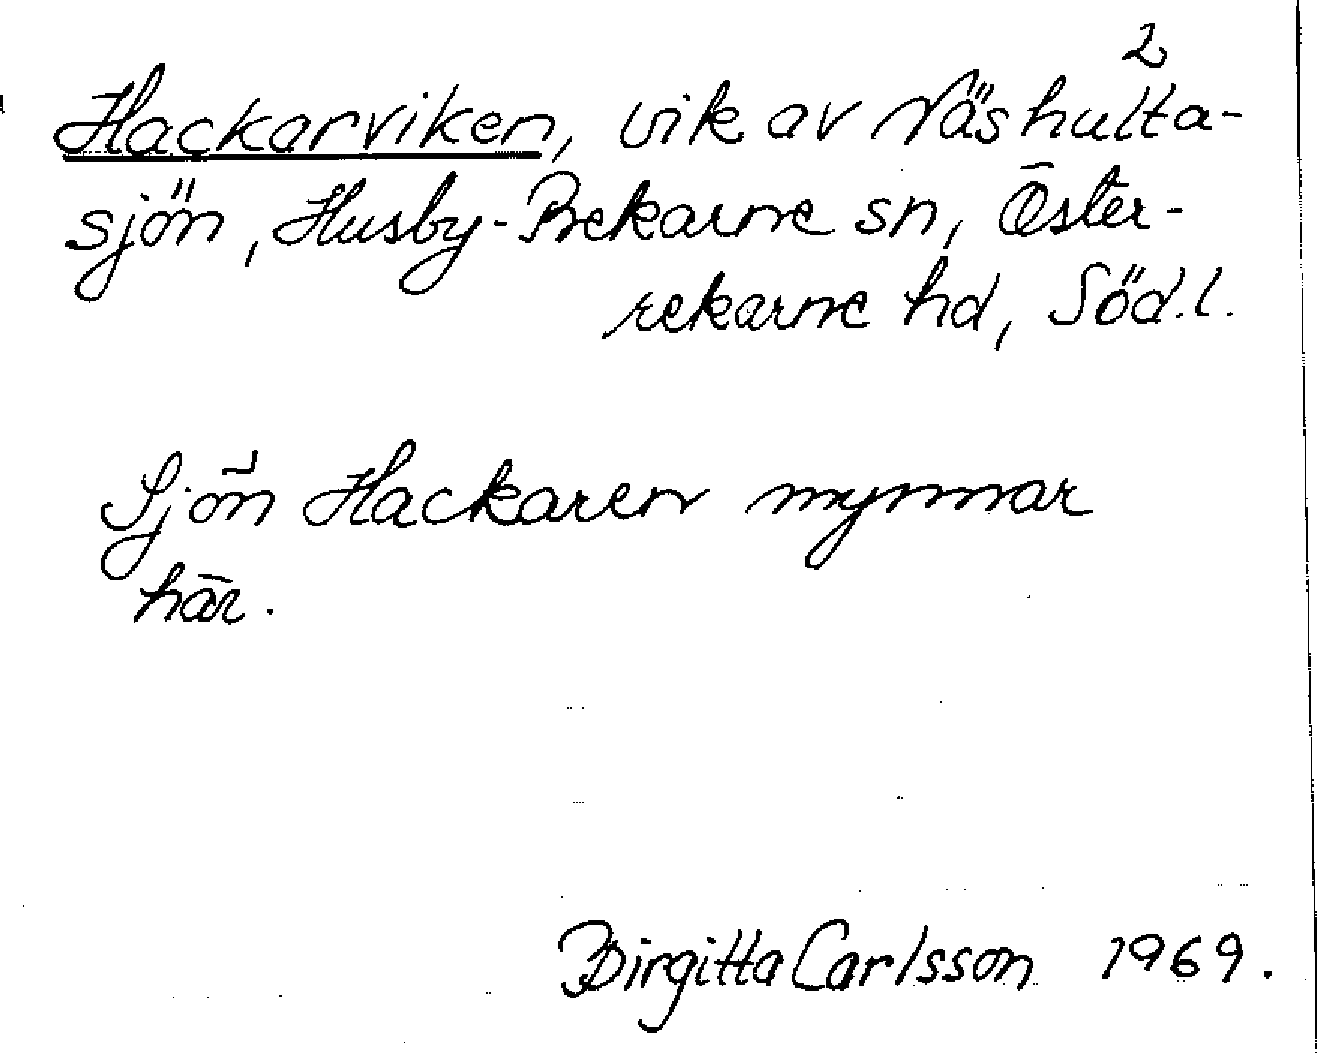 2
Hackarviken, vik av Näshulta-
sjön, Husby-Rekarne sn, Öster-
rekarne hd, Söd.l.
Sjön Hackaren mynnar
här.
Birgitta Carlsson 1969.